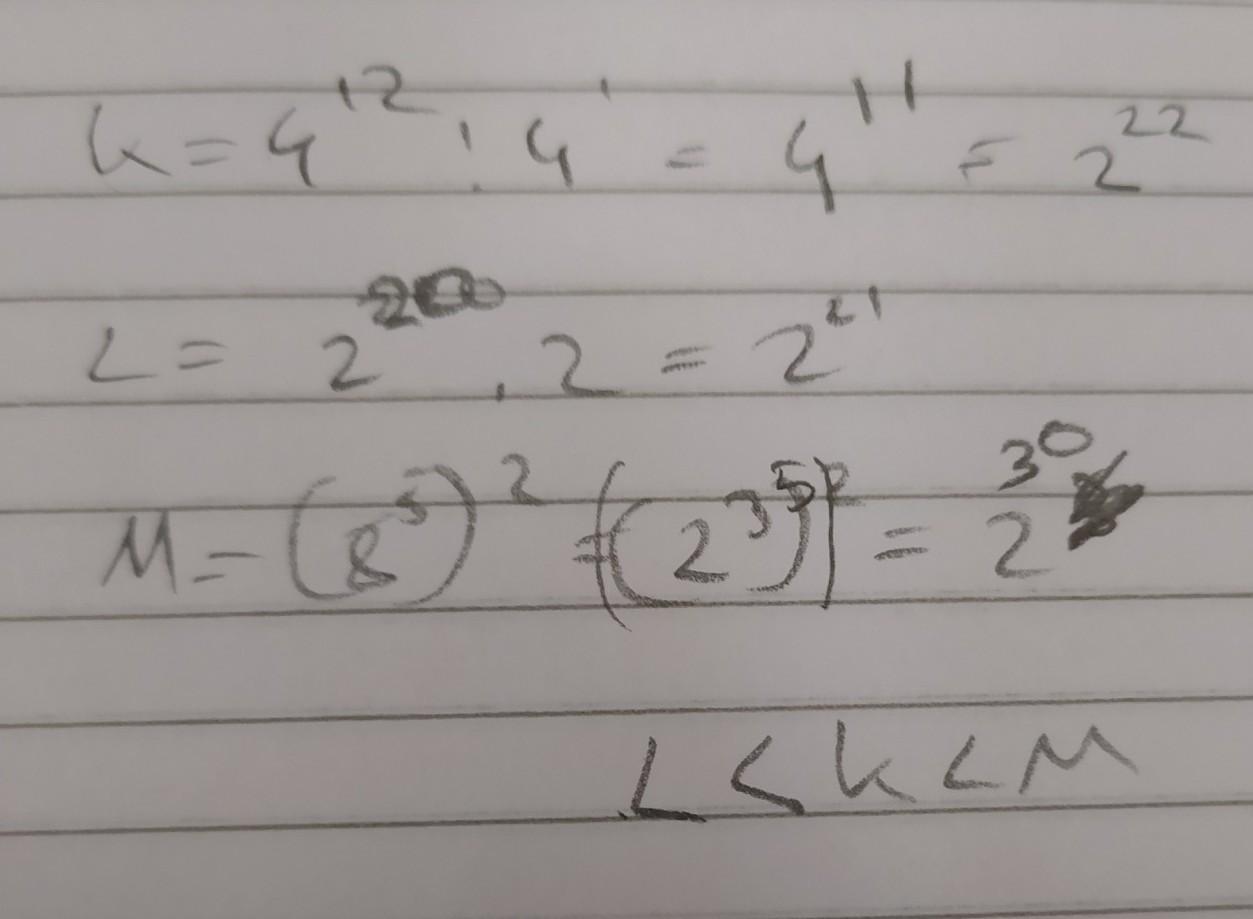 k = 4¹² : 4¹ = 4¹¹ = 2²²
L = 2²⁰ . 2 = 2²¹
M = (8⁵)² = ((2³⁵))² = 2³⁰
L < k < M